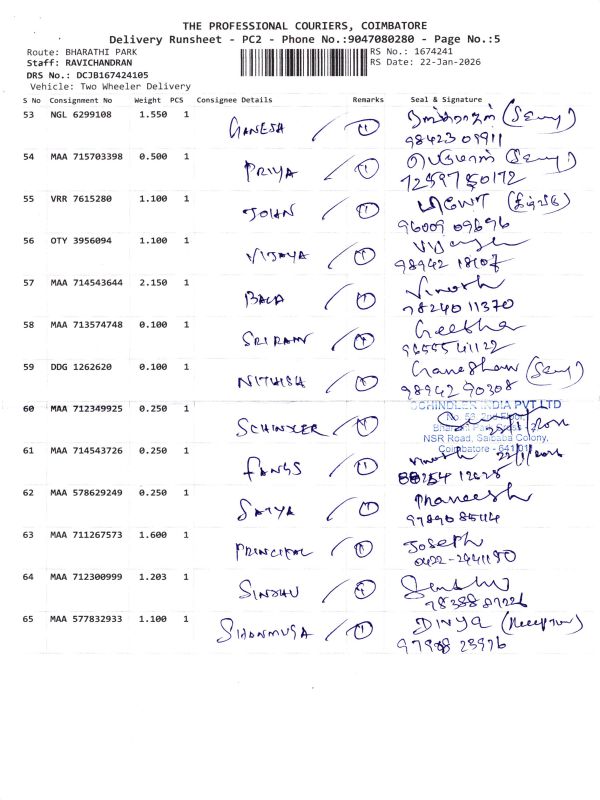 THE PROFESSIONAL COURIERS, COIMBATORE
Delivery Runsheet - PC2 - Phone No.:9047080280 - Page No.:5
Route: BHARATHI PARK
RS No.: 1674241
Staff: RAVICHANDRAN
RS Date: 22-Jan-2026
DRS No.: DCJB167424105
Vehicle: Two Wheeler Delivery
S No Consignment No Weight PCS Consignee Details Remarks Seal & Signature
53 NGL 6299108 1.550 1 GANESH 1 (Secy)
98423 09911
54 MAA 715703398 0.500 1 PRIYA 1 பெருமாள் (Secy)
55 VRR 7615280 1.100 1 JOHN 1
96009 09696
56 OTY 3956094 1.100 1 VIJAYA 1
98942 18107
57 MAA 714543644 2.150 1 BALA 1 Vinoth
78240 11370
58 MAA 713574748 0.100 1 SRIRAM 1 Geetha
96555 41122
59 DDG 1262620 0.100 1 NITHISH 1 Ganeshan (Secy)
98942 90308
60 MAA 712349925 0.250 1 SCHINDLER 1 SCHINDLER INDIA PVT LTD
No. 53, 2nd Floor,
NSR Road, Saibaba Colony,
Coimbatore - 641 011
61 MAA 714543726 0.250 1 FANGS 1 Vinoth
12625
62 MAA 578629249 0.250 1 SATYA 1 Phaneesh
97890 85114
63 MAA 711267573 1.600 1 PRINCIPAL 1 Joseph
0422-2441190
64 MAA 712300999 1.203 1 SINDHU 1
65 MAA 577832933 1.100 1 SHANMUGA 1 DIVYA (Reception)
97988 23976